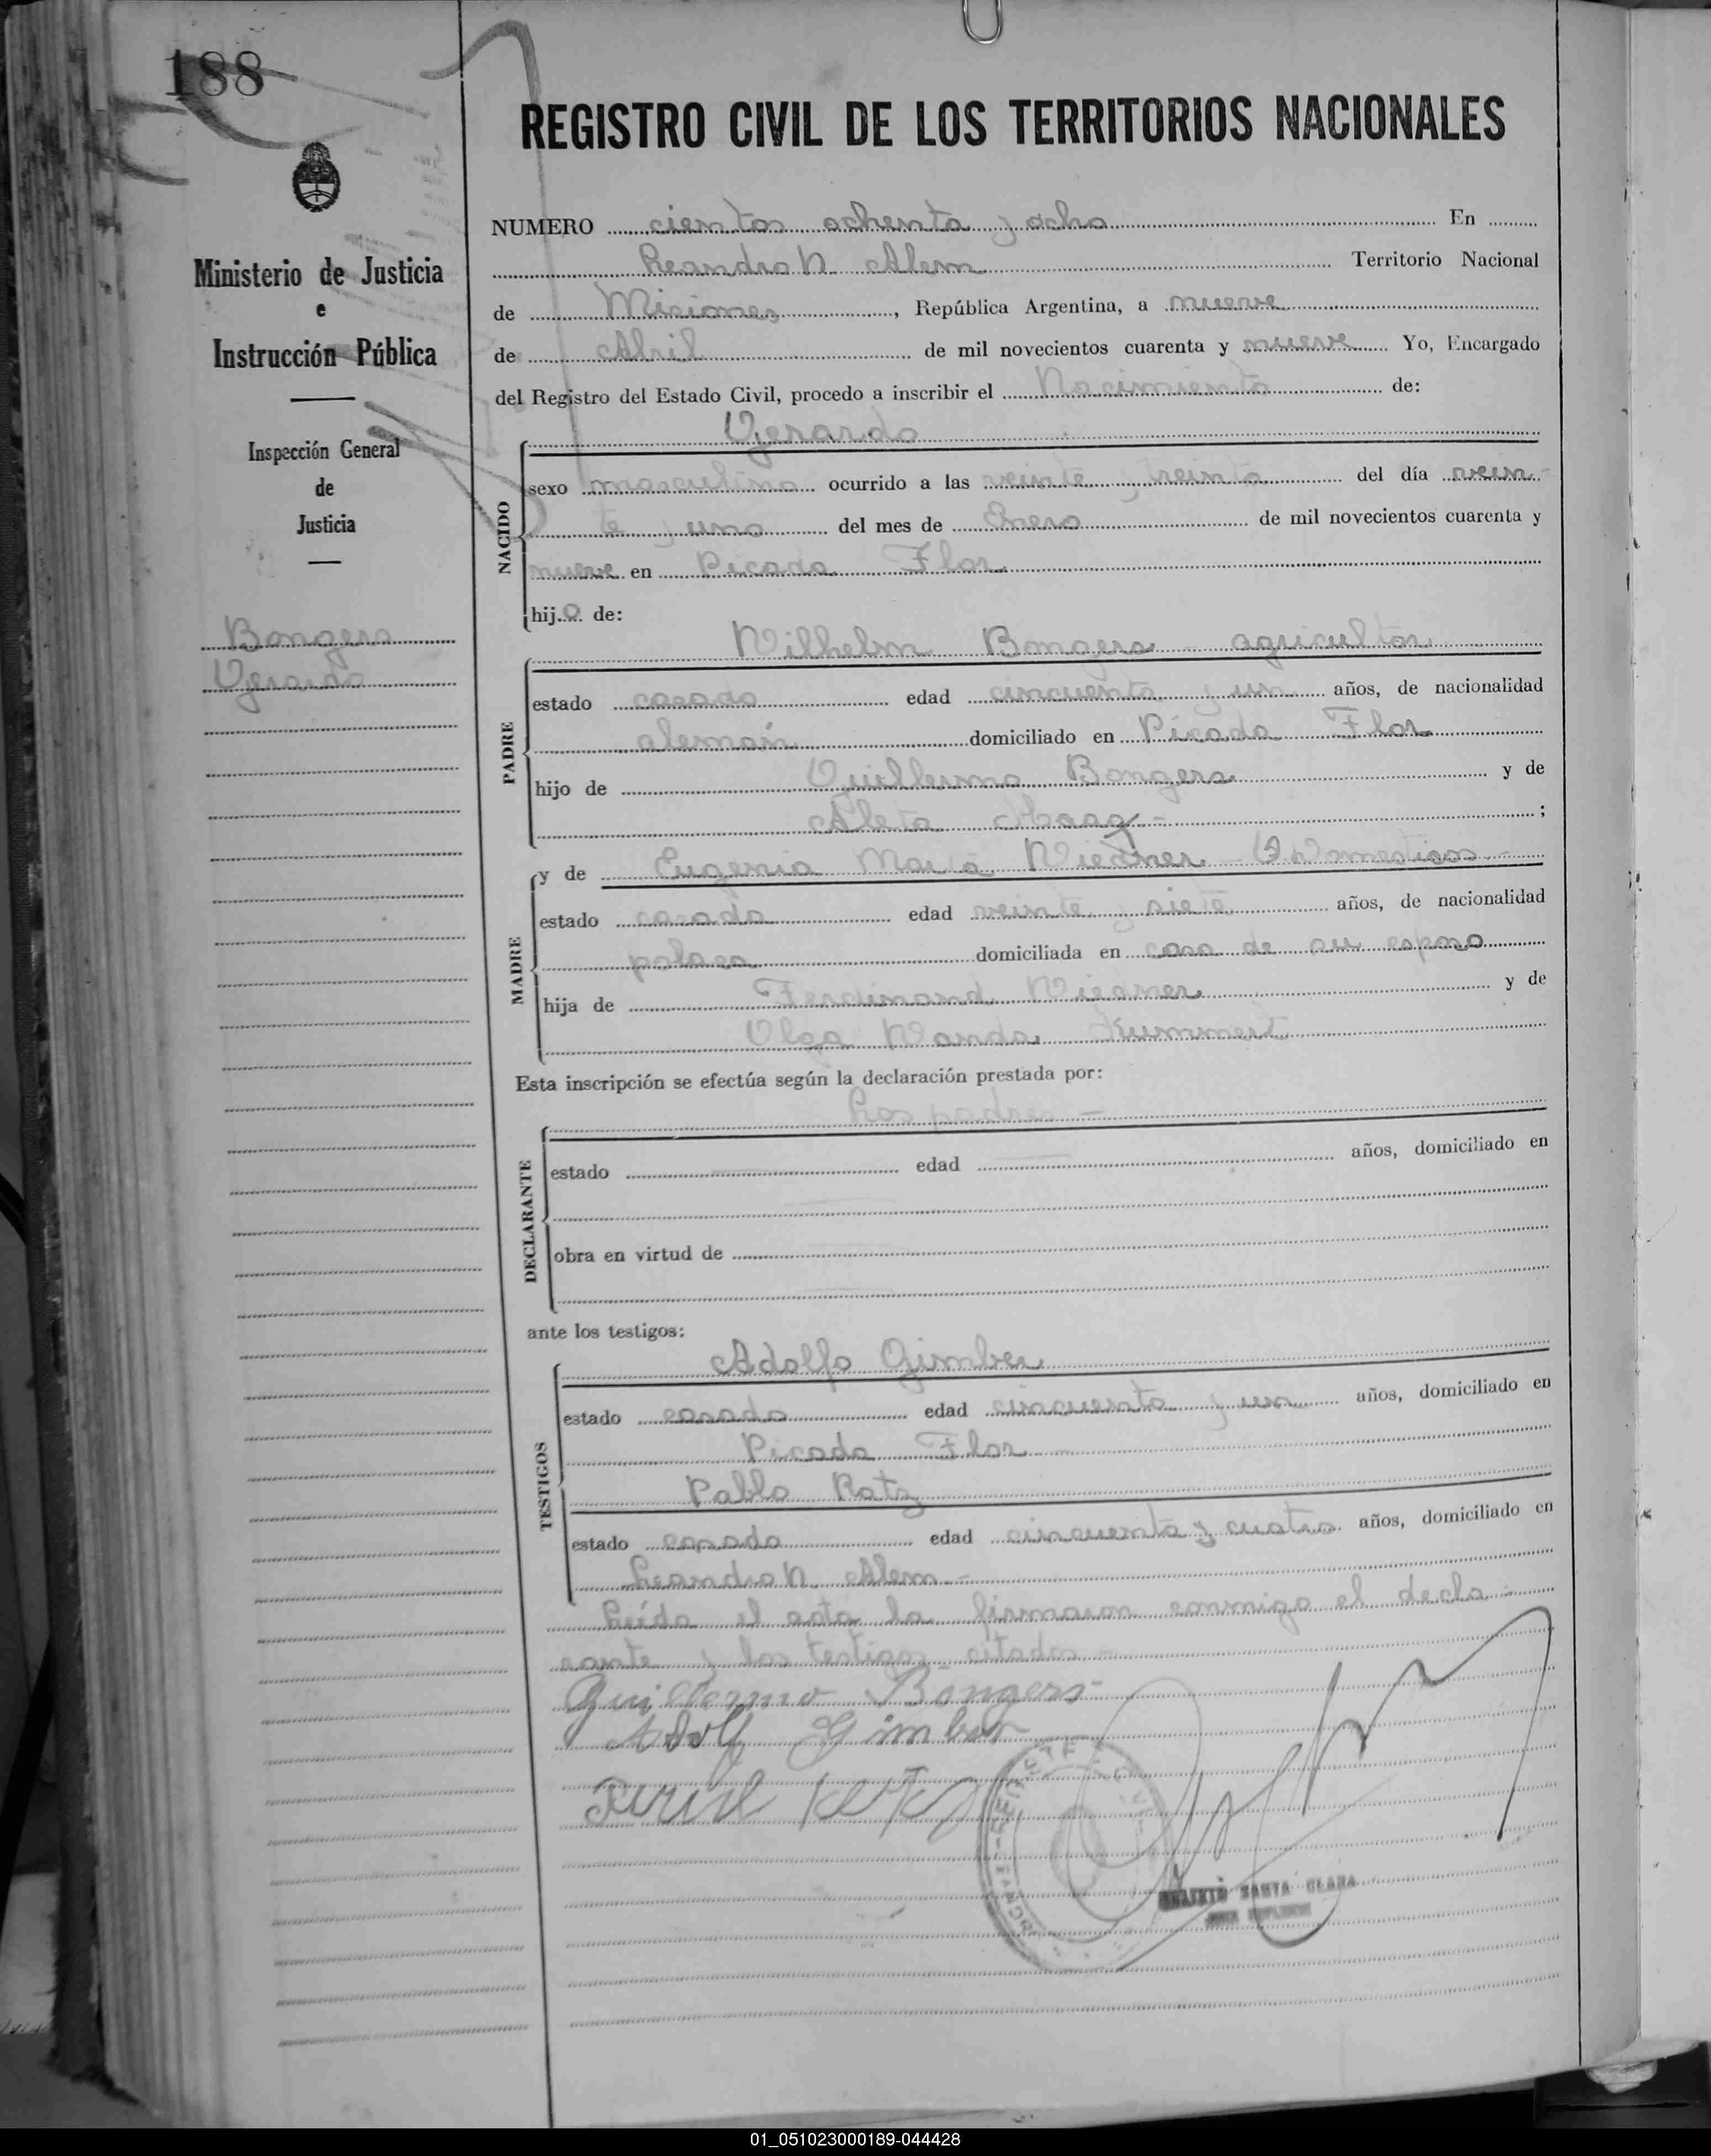 188
REGISTRO CIVIL DE LOS TERRITORIOS NACIONALES
Ministerio de Justicia
e
Instrucción Pública
Inspección General
de
Justicia
Bongers
Gerardo
NUMERO cientos ochenta y ocho En
Leandro N. Alem Territorio Nacional
de Misiones, República Argentina, a nueve
de Abril de mil novecientos cuarenta y nueve Yo, Encargado
del Registro del Estado Civil, procedo a inscribir el Nacimiento de:
Gerardo
NACIDO
sexo masculino ocurrido a las veinte y treinta del día vein-
te y uno del mes de Enero de mil novecientos cuarenta y
nueve en Picada Flor
hijo de:
Wilhelm Bongers - agricultor
PADRE
estado casado edad cincuenta y un años, de nacionalidad
alemán domiciliado en Picada Flor
hijo de Guillermo Bongers y de
Aleta Haag - ;
MADRE
y de Eugenia Maria Wiedner - Q. Domesticos -
estado casada edad veinte y siete años, de nacionalidad
polaca domiciliada en casa de su esposo
hija de Ferdinand Wiedner y de
Olga Wanda Kummert
Esta inscripción se efectúa según la declaración prestada por:
Los padres -
DECLARANTE
estado edad años, domiciliado en
obra en virtud de
ante los testigos:
TESTIGOS
Adolfo Gimber
estado casado edad cincuenta y un años, domiciliado en
Picada Flor
Pablo Ratz
estado casado edad cincuenta y cuatro años, domiciliado en
Leandro N. Alem -
Leída el acta la firmaron conmigo el decla-
rante y los testigos citados -
Guillermo Bongers
Adolf Gimber
SANTA CLARA
01_051023000189-044428